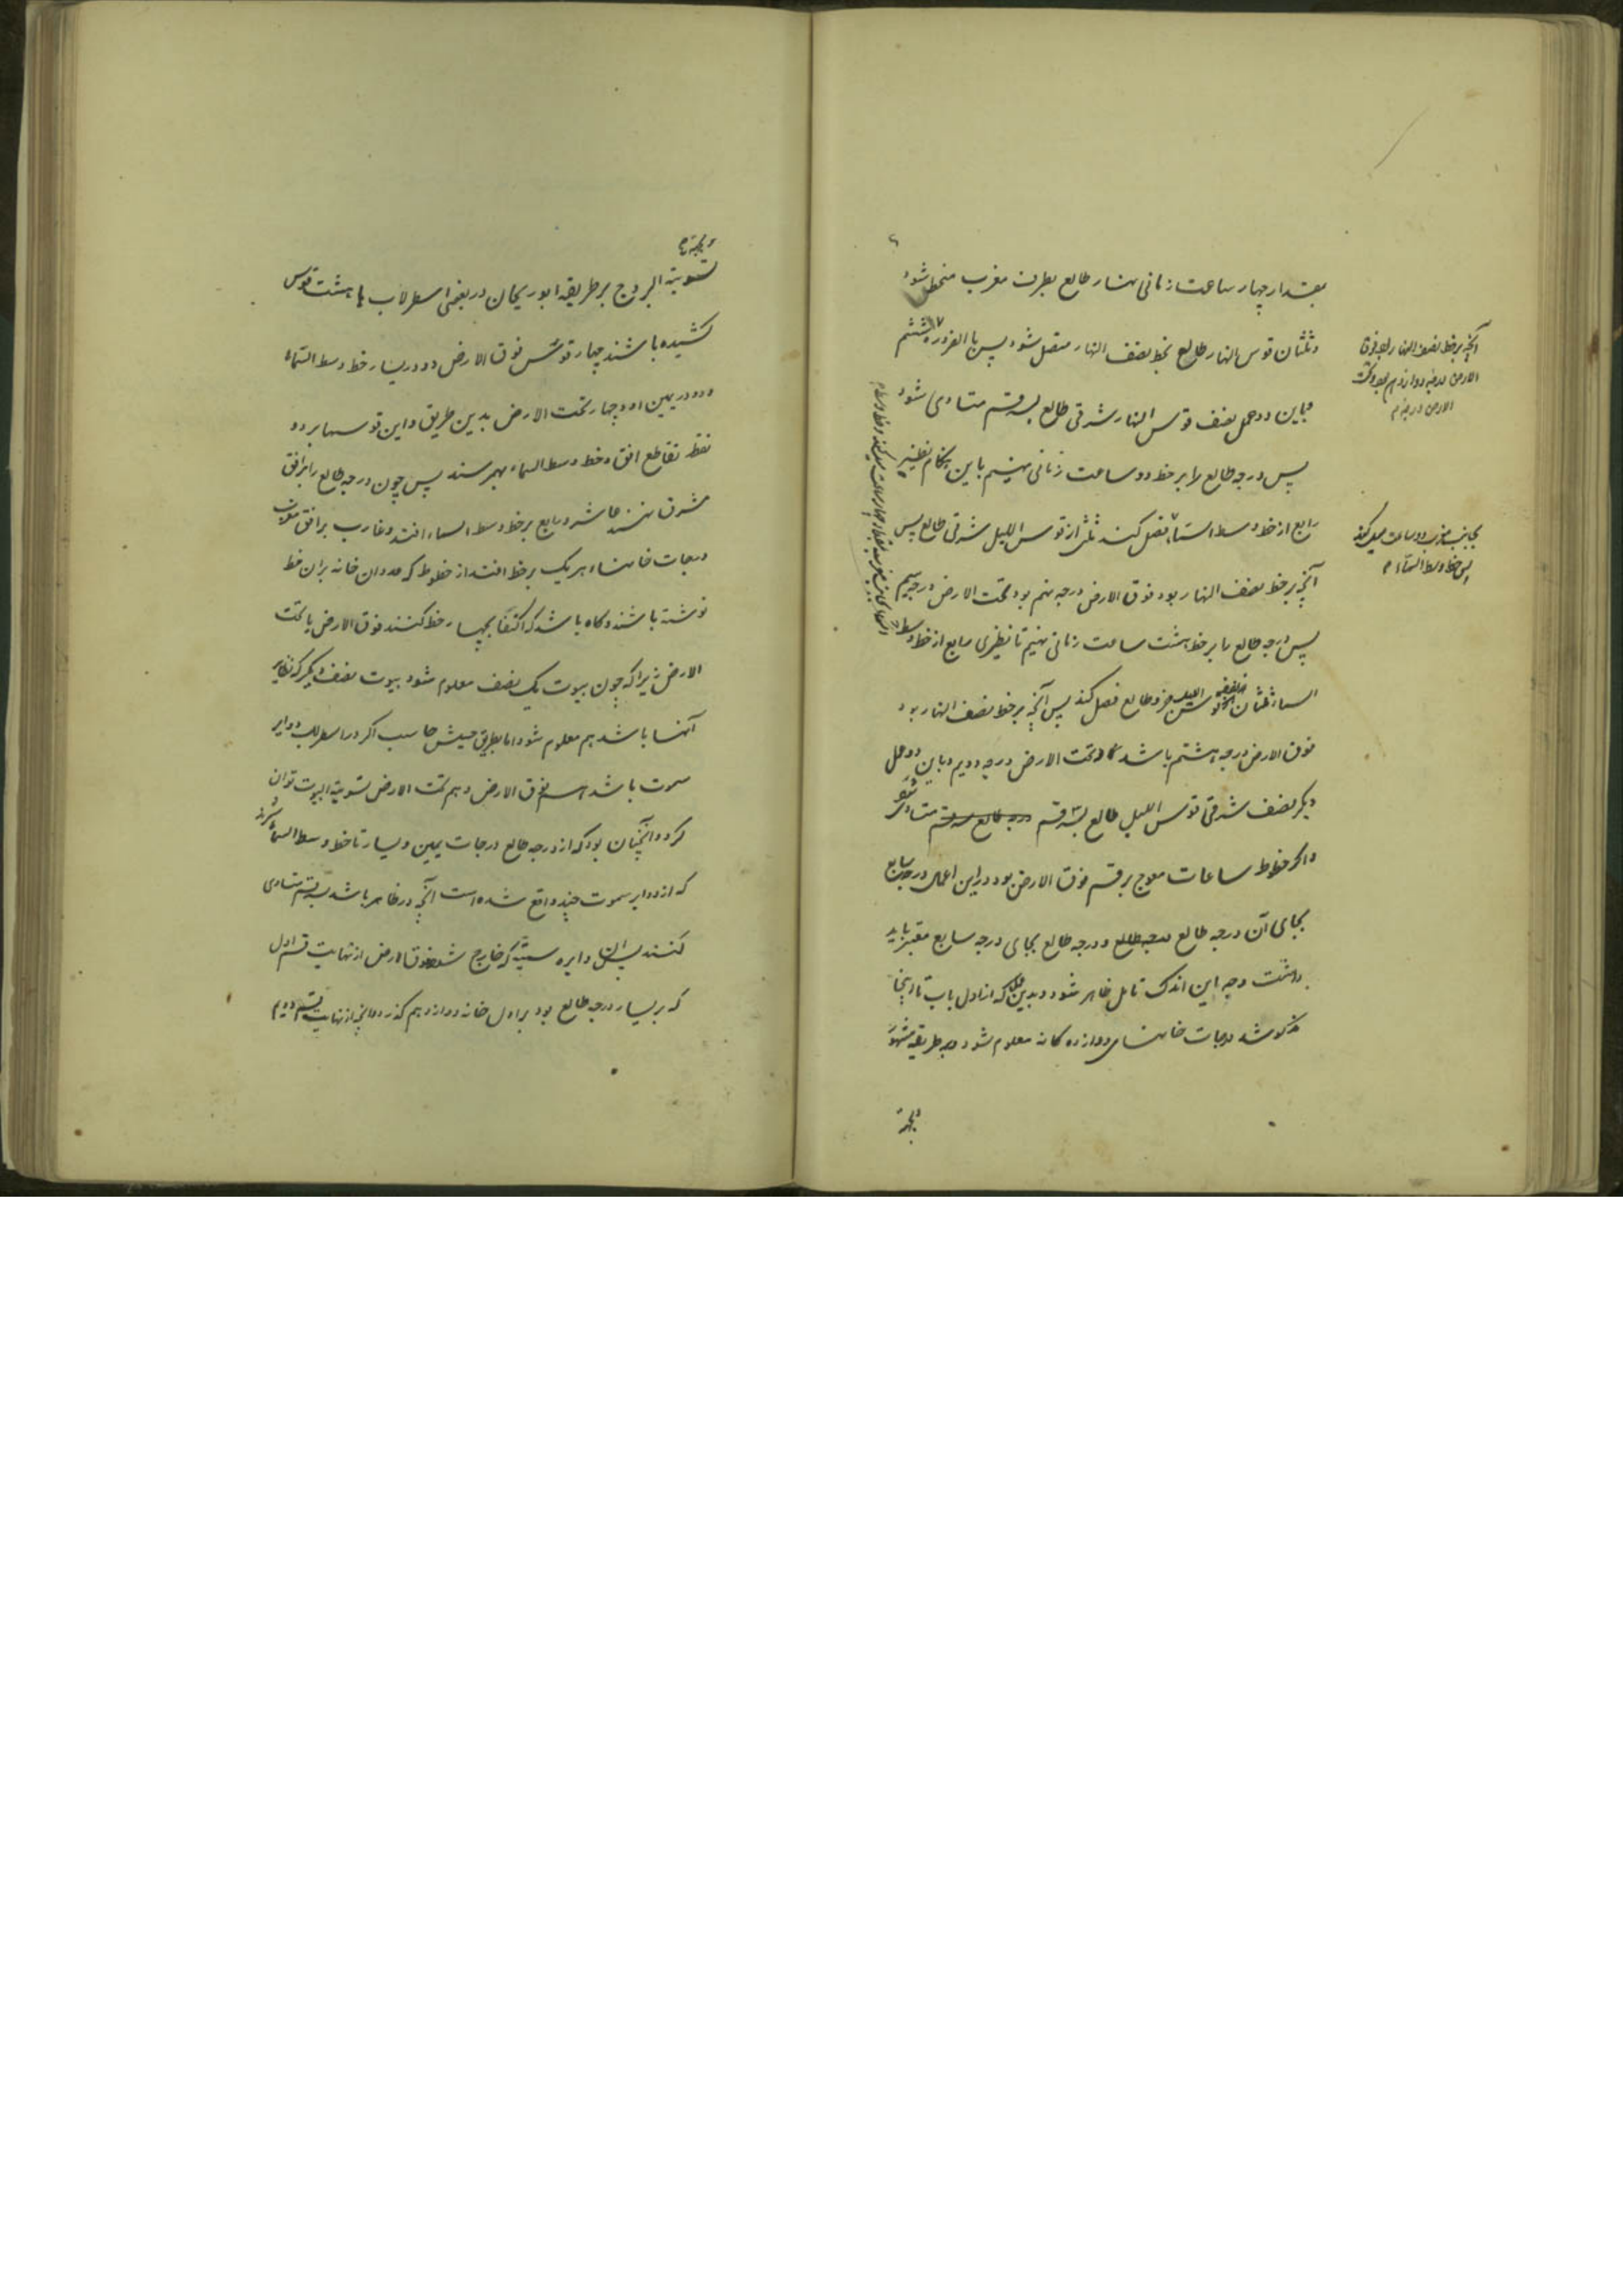 بمقدار چهار ساعت زمانی نهار طالع بطرف مغرب منحط شود
و ثلثان قوس النهار طالع بخط نصف النهار منفصل شود پس بالضرورة
و باین دو عمل نصف قوس النهار شرقی طالع بسه قسم متساوی شود
پس درجه طالع را بر خط دو ساعت زمانی نهیم باین هنگام نظیر
رابع از خط وسط السماء فصل کند ثلثی از قوس اللیل شرقی طالع پس
آنچه بر خط نصف النهار بود فوق الارض درجه نهم بود تحت الارض درجه سیم
پس درجه طالع را بر خط هشت ساعت زمانی نهیم تا نظیر رابع از خط وسط
السماء ثلثان قوس اللیل جزو طالع فصل کند پس آنچه بر خط نصف النهار بود
فوق الارض درجه هشتم باشد و تحت الارض درجه دویم و باین دو عمل
دیگر نصف شرقی قوس اللیل طالع بسه قسم متساوی شود
و اگر خطوط ساعات معوج بر قسم فوق الارض بود در این اعمال درجه سابع
بجای آن درجه طالع و درجه طالع بجای درجه سابع معتبر باید
داشت وجه این اندک تامل ظاهر شود و بدین که از اول باب تا اینجا
مذکور شد درجات خانهای دوازده کانه معلوم شود بطریقه مشهور
و بجهة
آنچه بر خط نصف النهار بود فوق
الارض درجه دوازدهم بود و تحت
الارض
بجانب مغرب دو ساعت میل کند
پس خط وسط السماء
و بجهة
تسویة البروج بر طریقه ابوریحان در بعضی اسطرلاب ها هشت قوس
کشیده باشند چهار قوس فوق الارض دو در یسار خط وسط السماء
و دو در یمین او و چهار تحت الارض بدین طریق و این قوسها بر دو
نقطه تقاطع افق و خط وسط السماء بهم رسند پس چون درجه طالع را بر افق
مشرق نهند عاشر و رابع بر خط وسط السماء افتد و غارب بر افق مغرب
و درجات خانها هر یک بر خط افتد از خطوط که عدد ان خانه بران خط
نوشته باشند و کاه باشد که اکتفا بچهار خط کنند فوق الارض یا تحت
الارض زیرا که چون بیوت یک نصف معلوم شود بیوت نصف دیگر که نظایر
آنها باشد هم معلوم شود اما بطریق حبش حاسب اگر در اسطرلاب دوایر
سموت باشد هم فوق الارض و هم تحت الارض تسویة البیوت توان
کرد و آنچنان بود که از درجه طالع درجات یمین و یسار تا خط وسط السماء
که از دوایر سموت چند واقع شده است آنچه در ظاهر باشد بسه قسم متساوی
کنند پس ان دایره سمتیه که خارج شود فوق الارض از نهایت قسم اول
که بر یسار درجه طالع بود بر اول خانه دوازدهم کذرد و آنچه از نهایت قسم دویم